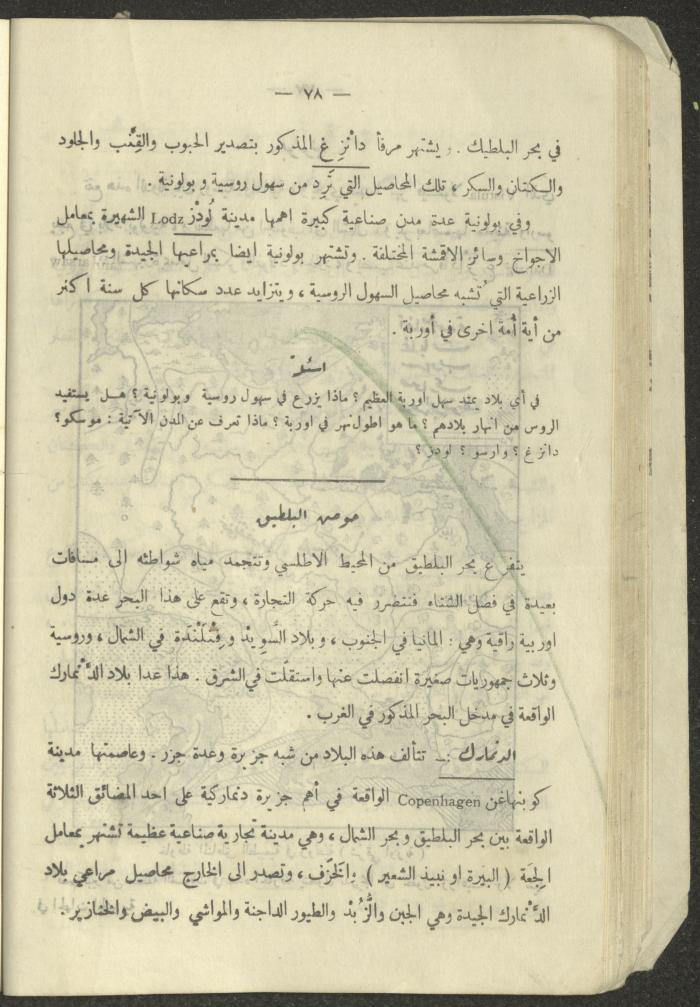 — ٧٨ —
في بحر البلطيك . ويشتهر مرفأ دانْزِغ المذكور بتصدير الحبوب والقِنَّب والجلود
والكتان والسكر ، تلك المحاصيل التي تَرِد من سهول روسية وبولونية .
وفي بولونية عدة مدن صناعية كبيرة اهمها مدينة لُودْز Lodz الشهيرة بمعامل
الاجواخ وسائر الاقمشة المختلفة . وتشتهر بولونية ايضا بمراعيها الجيدة ومحاصيلها
الزراعية التي تُشبه محاصيل السهول الروسية ، ويتزايد عدد سكانها كل سنة اكثر
من أية أمة اخرى في أوربة .
اسئلة
في أي بلاد يمتد سهل اوربة العظيم ؟ ماذا يزرع في سهول روسية وبولونية ؟ هل يستفيد
الروس من انهار بلادهم ؟ ما هو اطول نهر في اوربة ؟ ماذا تعرف عن المدن الآتية : موسكو ؟
دانزغ ؟ وارسو ؟ لودز ؟
حوض البلطيق
يتفرع بحر البلطيق من المحيط الاطلسي وتتجمد مياه شواطئه الى مسافات
بعيدة في فصل الشتاء فتتضرر فيه حركة التجارة ، وتقع على هذا البحر عدة دول
اوربية راقية وهي : المانيا في الجنوب ، وبلاد السَّويْد وفِنْلَنْدَة في الشمال ، وروسية
وثلاث جمهوريات صغيرة انفصلت عنها واستقلّت في الشرق . هذا عدا بلاد الدَّنْمارك
الواقعة في مدخل البحر المذكور في الغرب .
الدنمارك :_ تتألف هذه البلاد من شبه جزيرة وعدة جزر . وعاصمتها مدينة
كوبنهاغن Copenhagen الواقعة في أهم جزيرة دنماركية على احد المضائق الثلاثة
الواقعة بين بحر البلطيق وبحر الشمال ، وهي مدينة تجارية صناعية عظيمة تشتهر بمعامل
الجِعَة ( البيرة او نبيذ الشعير ) والخَزَف ، وتصدر الى الخارج محاصيل مراعي بلاد
الدَّنْمارك الجيدة وهي الجبن والزُّبْد والطيور الداجنة والمواشي والبيض والخنازير .